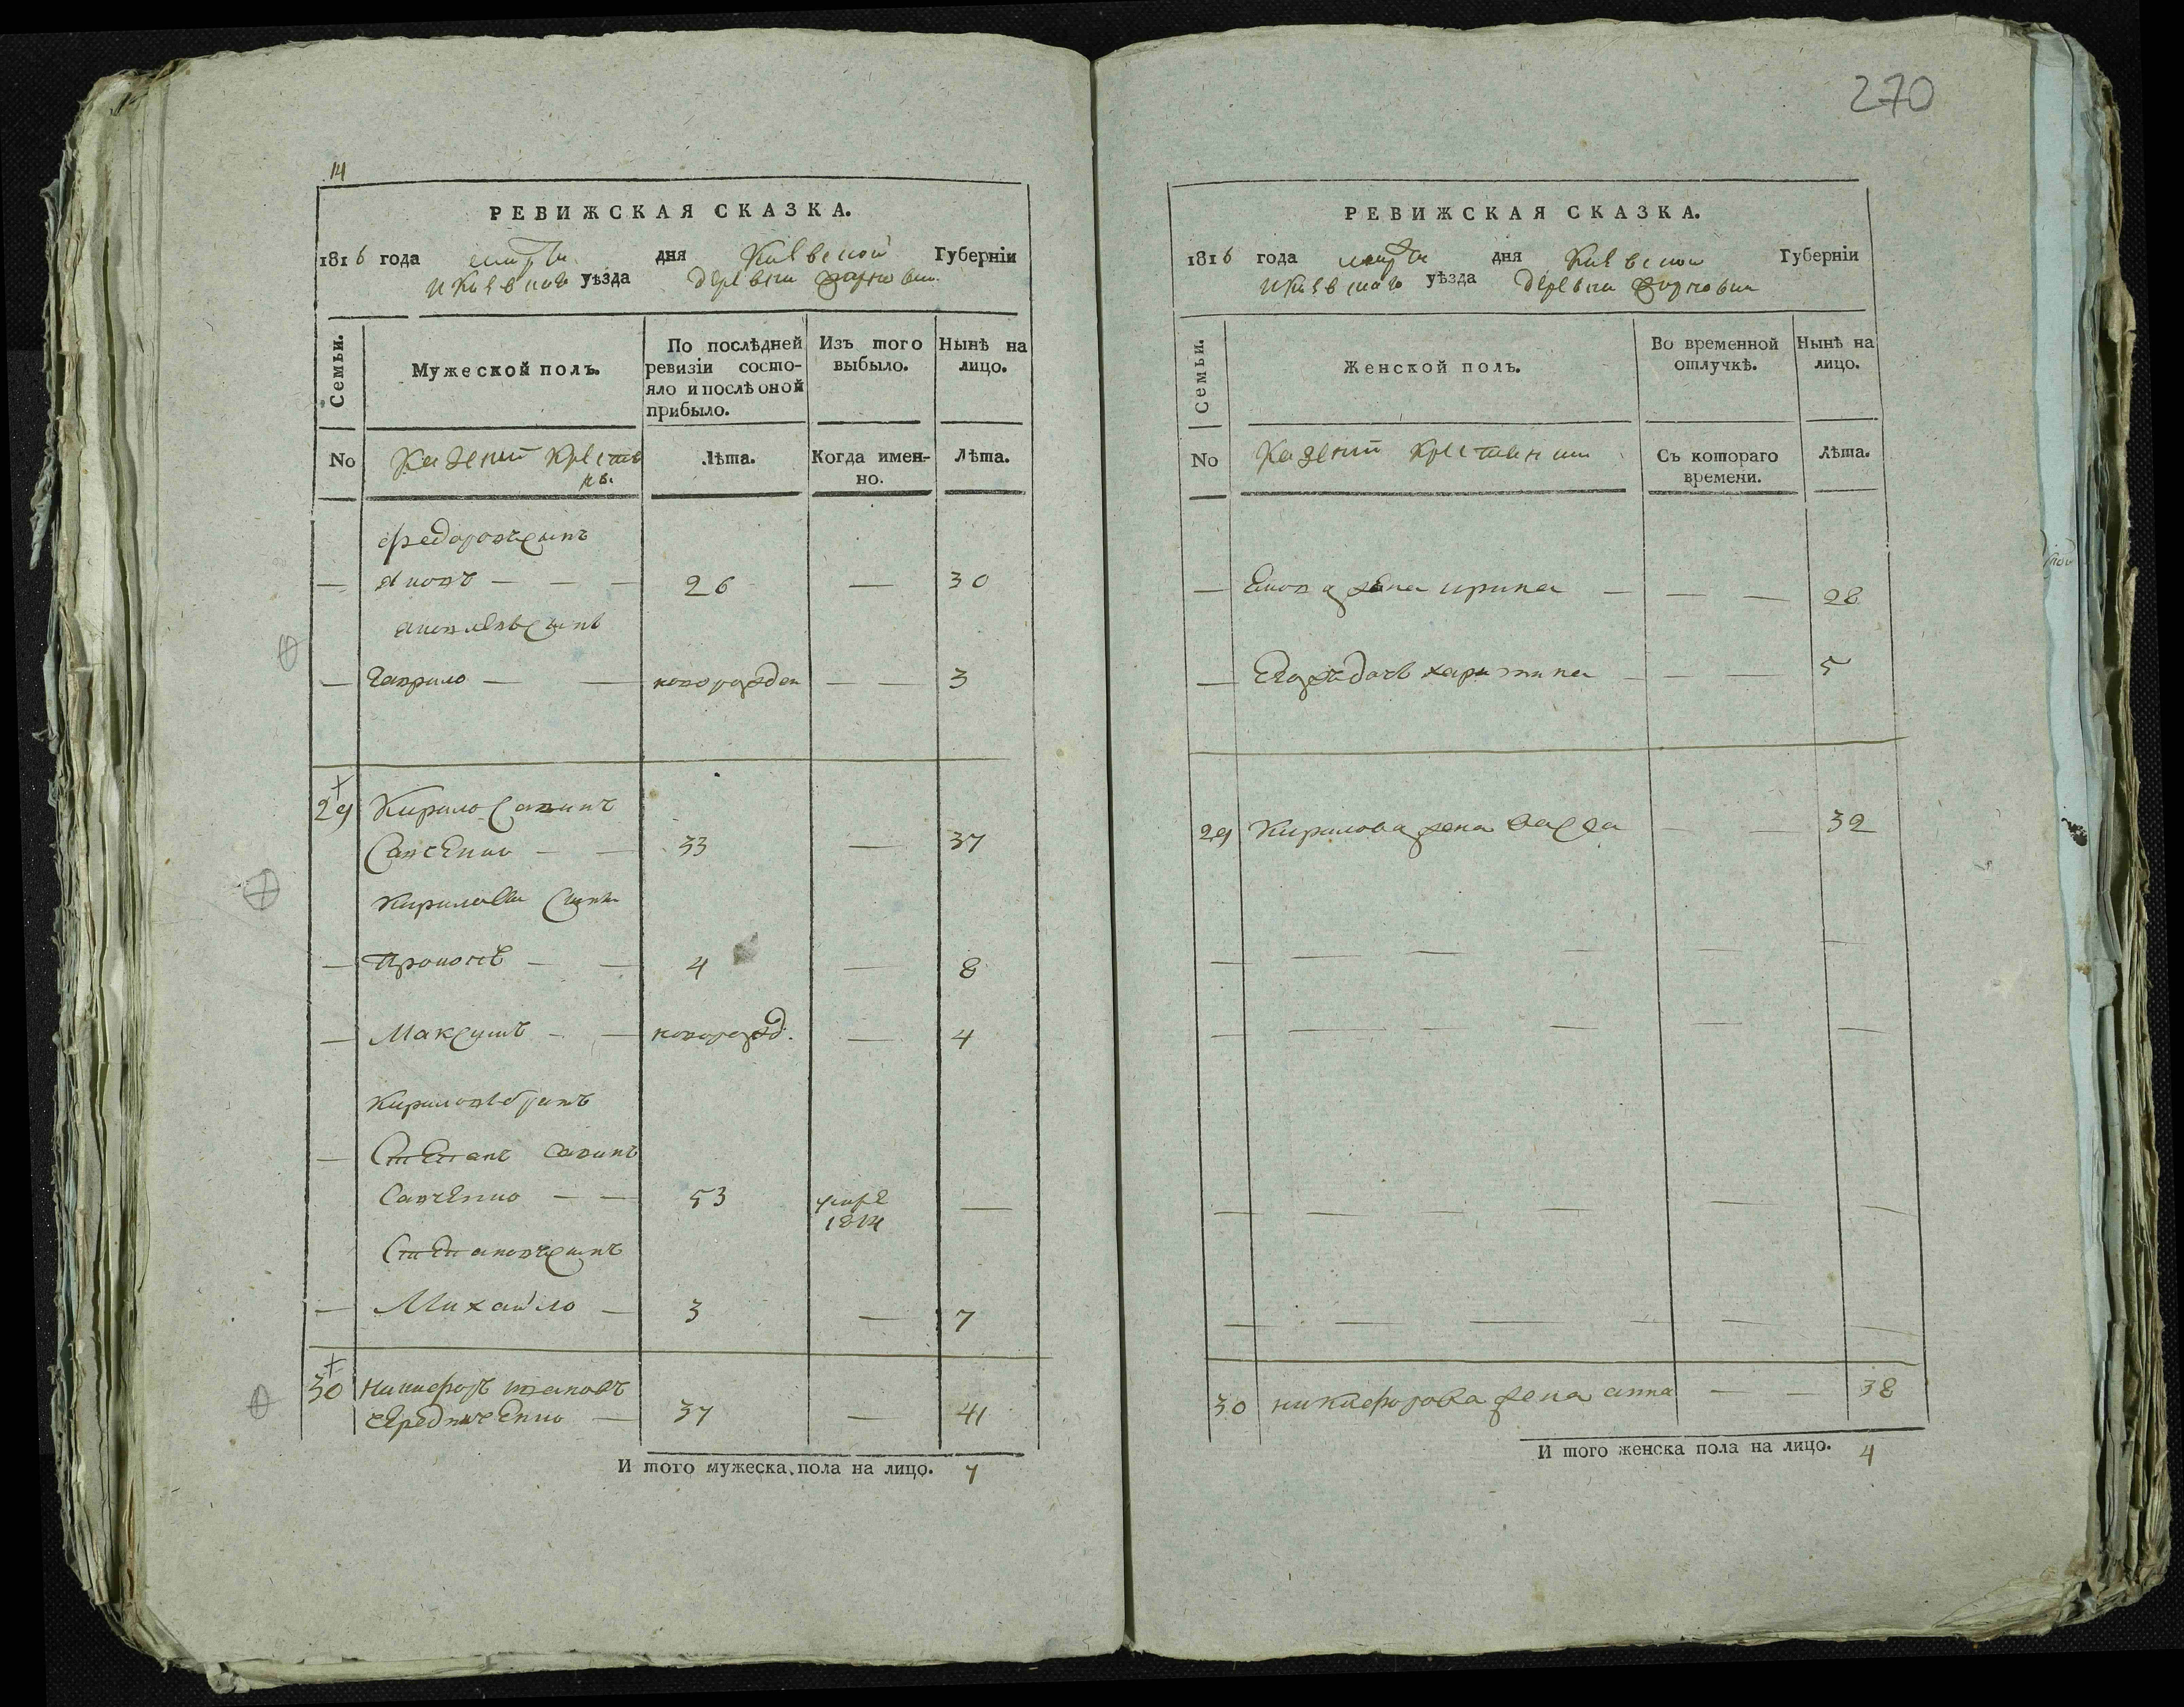 270
14
РЕВИЖСКАЯ СКАЗКА.
1816 года марта дня Киевской Губерніи
и Киевскаго уѣзда деревни
Семьи.
Мужеской полъ.
По послѣдней ревизіи состо-
яло и послѣ оной
прибыло.
Изъ того
выбыло.
Нынѣ на
лицо.
No
Казенніи крестя
не.
Лѣта.
Когда имен-
но.
Лѣта.
федоровъ сынъ
— Яковъ — — — 26 — 30
яковлевъ сынъ
— Гаврило — — новорожден — — 3
29 Кирило Савинъ
Савченко — — 33 — 37
Кириловы сыны
— Прокопъ — — 4 — 8
— Максимъ — — новорожд. — 4
Кириловъ братъ
— Степанъ Савинъ
Савченко — — 53 умре —
1814
Степановъ сынъ
— Михайло — 3 — 7
30 Никифоръ
Середниченко — 37 — 41
И того мужеска пола на лицо. 7
РЕВИЖСКАЯ СКАЗКА.
1816 года марта дня Киевской Губерніи
и Киевскаго уѣзда деревни
Семьи.
Женской полъ.
Во временной
отлучкѣ.
Нынѣ на
лицо.
No
Казенніи крестяни
Съ котораго
времени.
Лѣта.
— жена ирина — — — 28
— Егожъ дочь харитина — — — 5
29 Кирилова жена Васса — — 32
30 никифорова жена анна — — 38
И того женска пола на лицо. 4